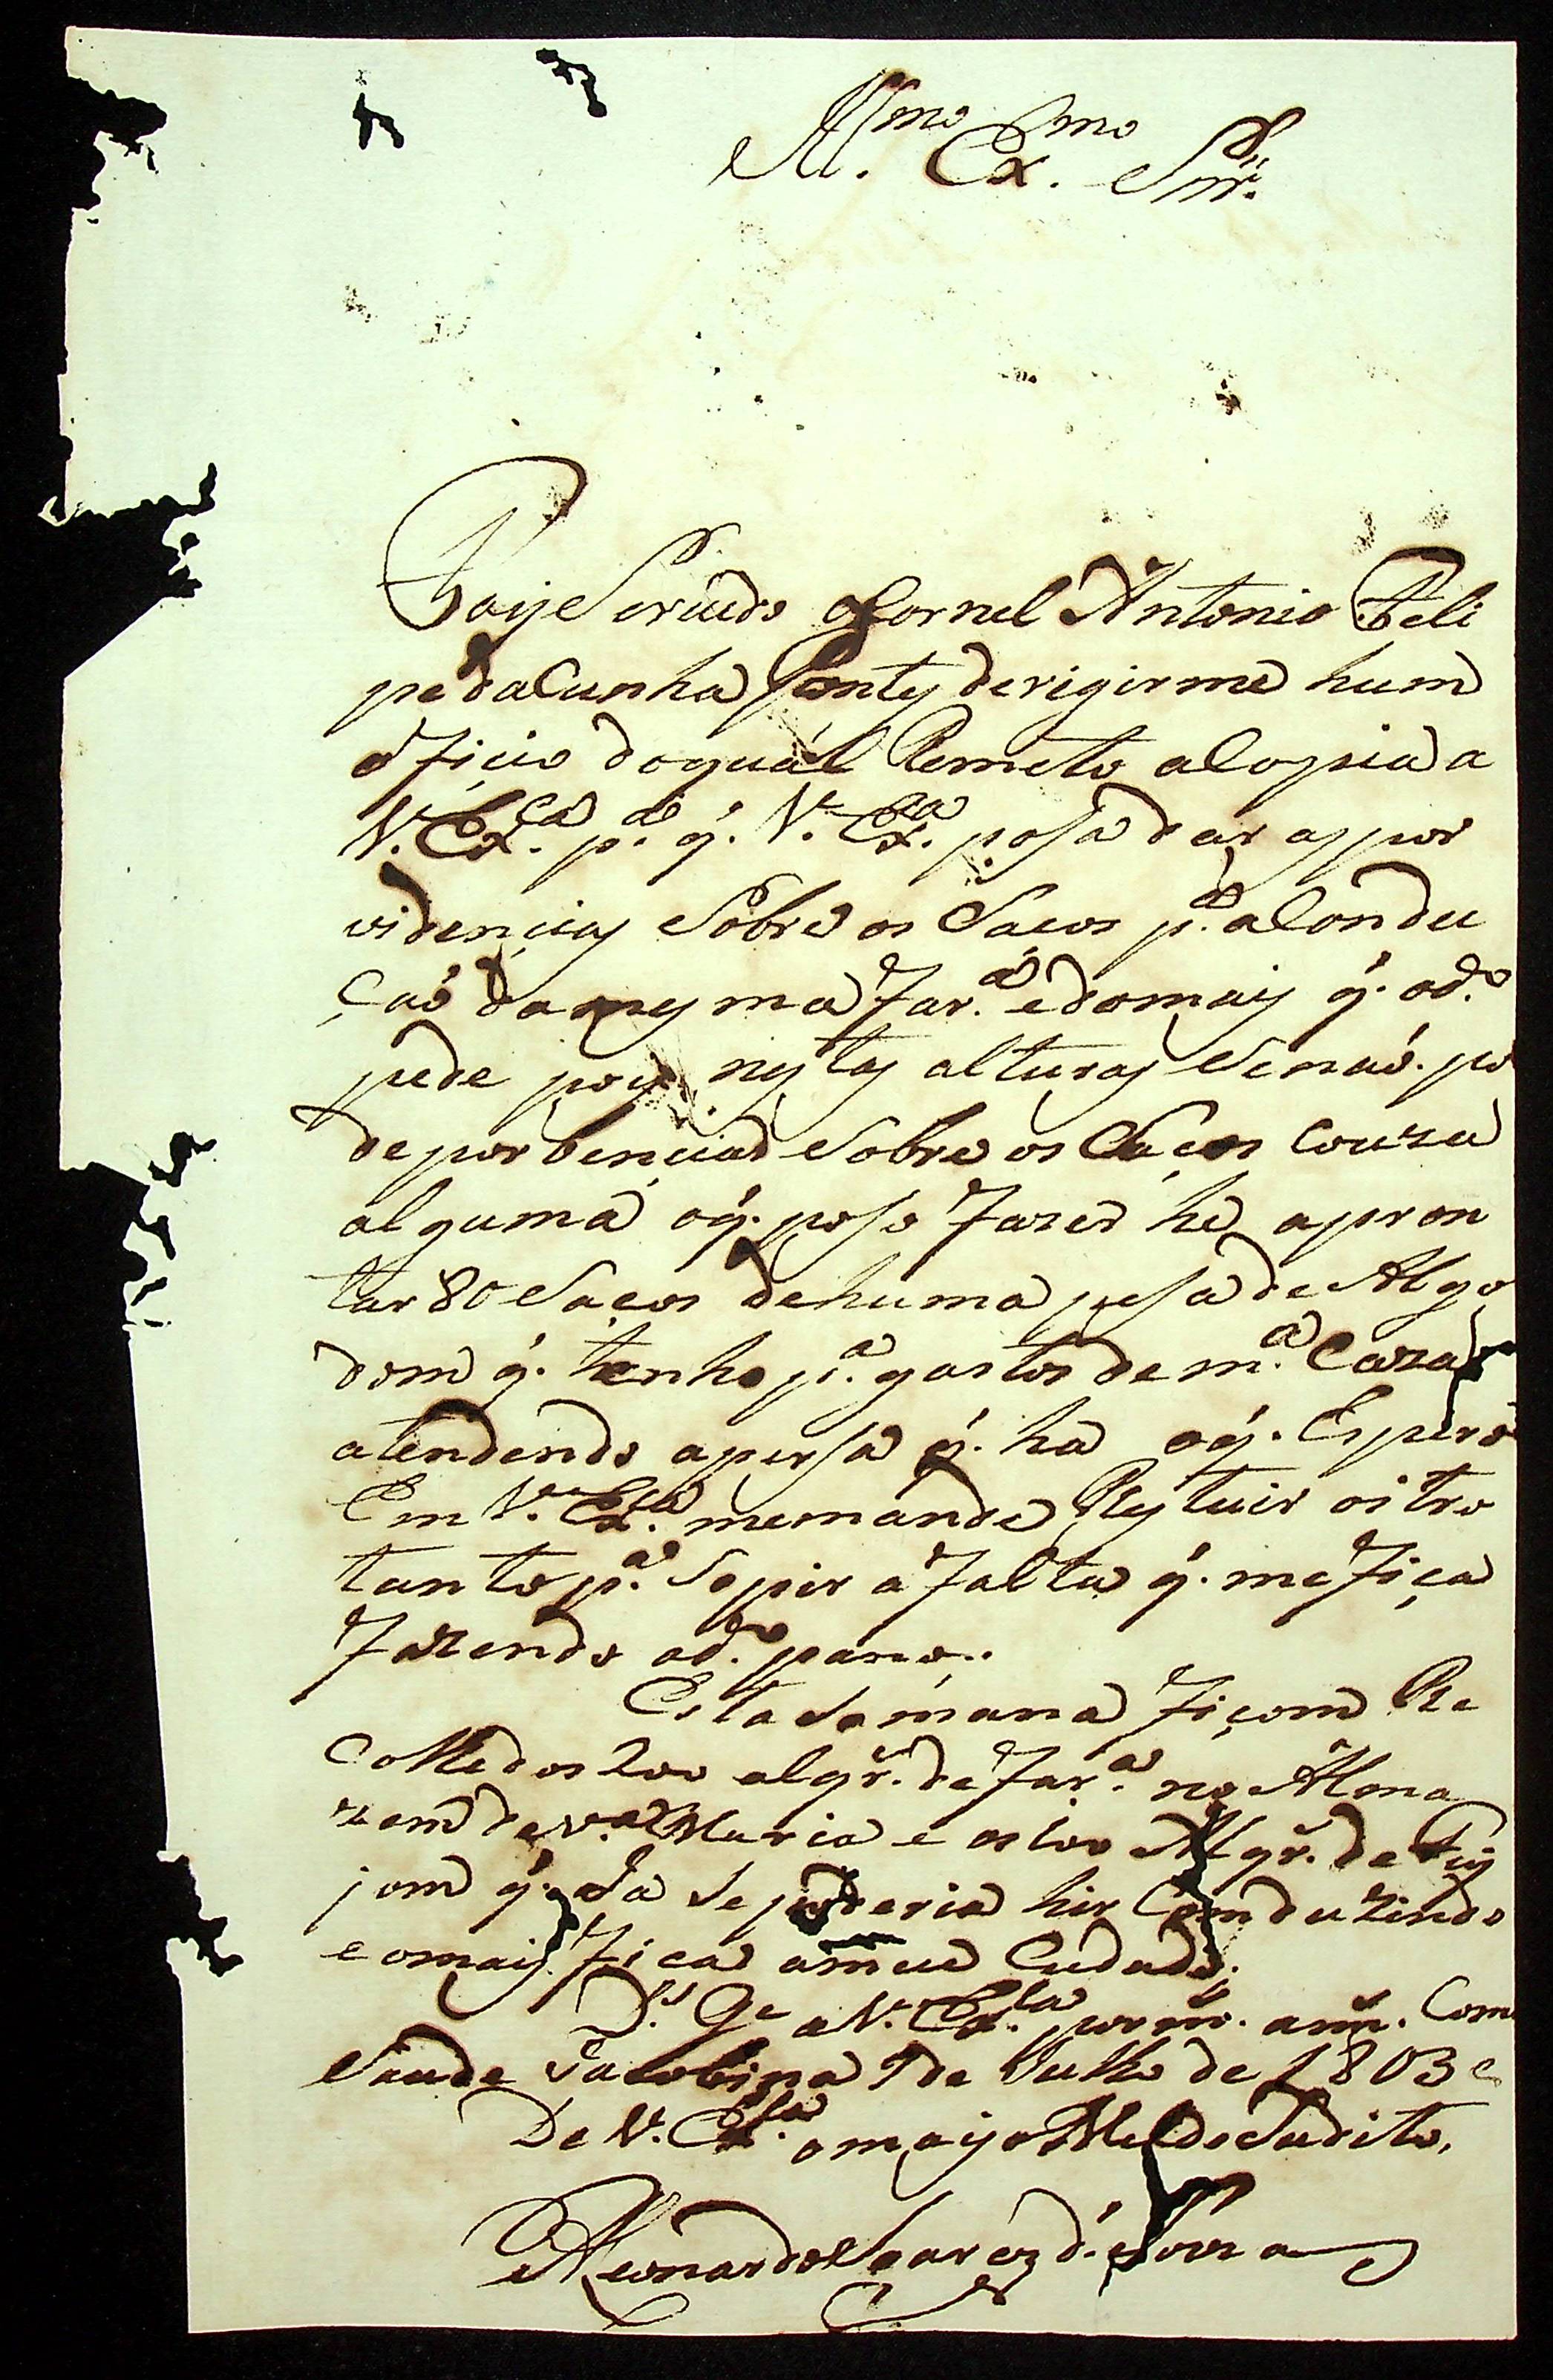 Ill.mo Ex.mo Snr.
Foi Servido o Cornel Antonio Feli
pe da Cunha Ponty derigirme hum
oficio do quál Remeto a Copia a
V. Ex.ca p.a q. V. Ex.ca posa dar as por
videnças Sobre os Sacos p.a a Condu
ção da mesma Far.a e do mais q. o d.o
pede pois nestas alturas Se naõ. po
de porbenciar Sobre os Sacos Couza
alguma o q. poso fazer he apron
tar 80 Sacos de huma pesa de Algo
dom q. tenho p.a gastos de m.a Caza
atendendo a persa q. ha o q. Espero
Em V. Ex.ca me mande Restuir oitro
tanto p.a Sopir a falta q. me fica
fazendo o d.o pano..
Esta Somana ficom Re
colhedos 200 alqr. de Far.a no Alma
zem de V.a Maria e os 100 Alqr. de Fij
jom q. Ja Se poderia hir Comduzindo
e o mais fica a meu Cudado.
D.s G.e a V. Ex.ca por m. an. Com
Saude Jacobina 9 de Julho de 1803
De V. Ex.ca o mayo Mel do Sudito,
Leonardo Soarez d. Souza